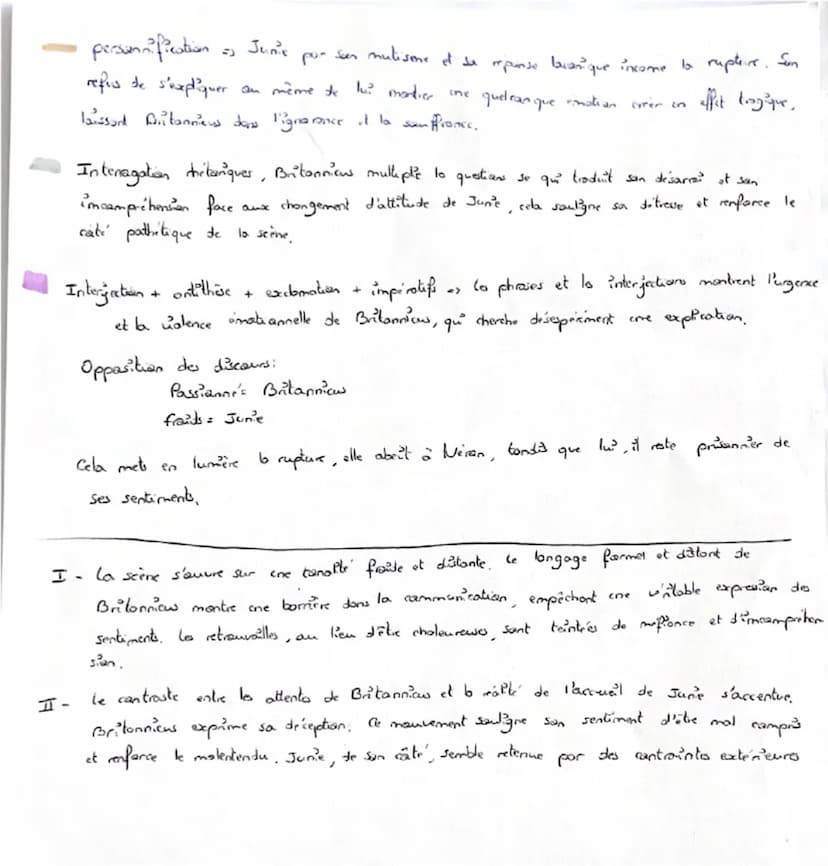 personnification => Junie par son mutisme et sa réponse laconique incarne la rupture. Son
refus de s'expliquer ou même de lui montrer une quelconque émotion créer un effet tragique,
laissant Britannicus dans l'ignorance et la souffrance.
Interrogation rhétoriques, Britannicus multiplie les questions se qui traduit son désarroi et son
incompréhension face aux changement d'attitude de Junie, cela souligne sa détresse et renforce le
côté pathétique de la scène.
Interjection + antithèse + exclamation + impératifs => les phrases et les interjections montrent l'urgence
et la violence émotionnelle de Britannicus, qui cherche désespérément une explication.
Opposition des discours:
Passionné = Britannicus
froids = Junie
Cela mets en lumière la rupture, elle obéit à Néron, tandis que lui, il reste prisonnier de
ses sentiments.
I - La scène s'ouvre sur une tonalité froide et distante. Le langage formel et distant de
Britannicus montre une barrière dans la communication, empêchant une véritable expression des
sentiments. Les retrouvailles, au lieu d'être chaleureuses, sont teintées de méfiance et d'incompréhen
sion.
II - Le contraste entre les attentes de Britannicus et la réalité de l'accueil de Junie s'accentue.
Britannicus exprime sa déception. Ce mouvement souligne son sentiment d'être mal compris
et renforce le malentendu. Junie, de son côté, semble retenue par des contraintes extérieurs